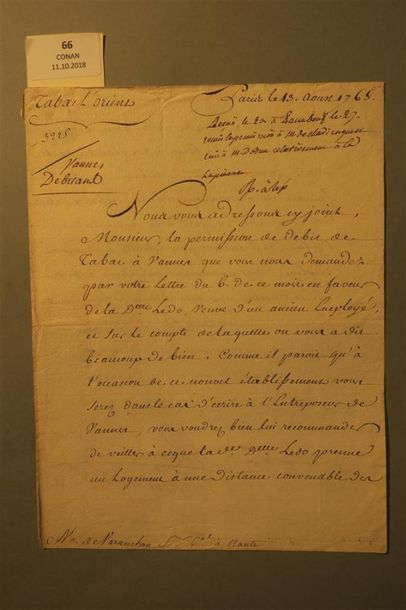 66
CONAN
11.10.2018
Tabac L'orient
Paris le 13. Aoust 1765.
3225
Vannes
Debitant
Nous vous adressons cy joint,
Monsieur, la permission de debit de
Tabac à Vannes que vous nous demandez
par votre Lettre du 6. de ce mois en faveur
de la Dme Ledo, Veuve d'un ancien Employé,
et sur le compte de laquelle on vous a dit
beaucoup de bien. Comme il paroit qu'à
l'ocasion de ce nouvel établissement vous
serez dans le cas d'écrire à l'Entreposeur de
Vannes, vous voudrez bien lui recommander
de veiller à ceque la de Dme Ledo prenne
un Logement à une distance convenable des
à Nante